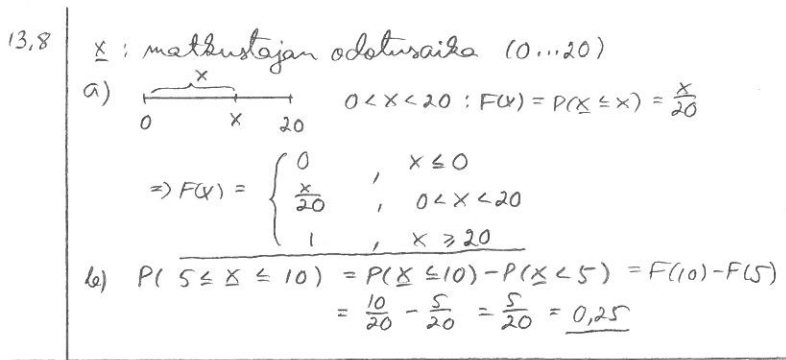 13,8 x : matkustajan odotusaika (0...20)
a) x
0 x 20 0 < x < 20 : F(x) = P(x ≤ x) = x/20
=> F(x) = { 0 , x ≤ 0
x/20 , 0 < x < 20
1 , x ≥ 20
b) P( 5 ≤ x ≤ 10) = P(x ≤ 10) - P(x < 5) = F(10) - F(5)
= 10/20 - 5/20 = 5/20 = 0,25